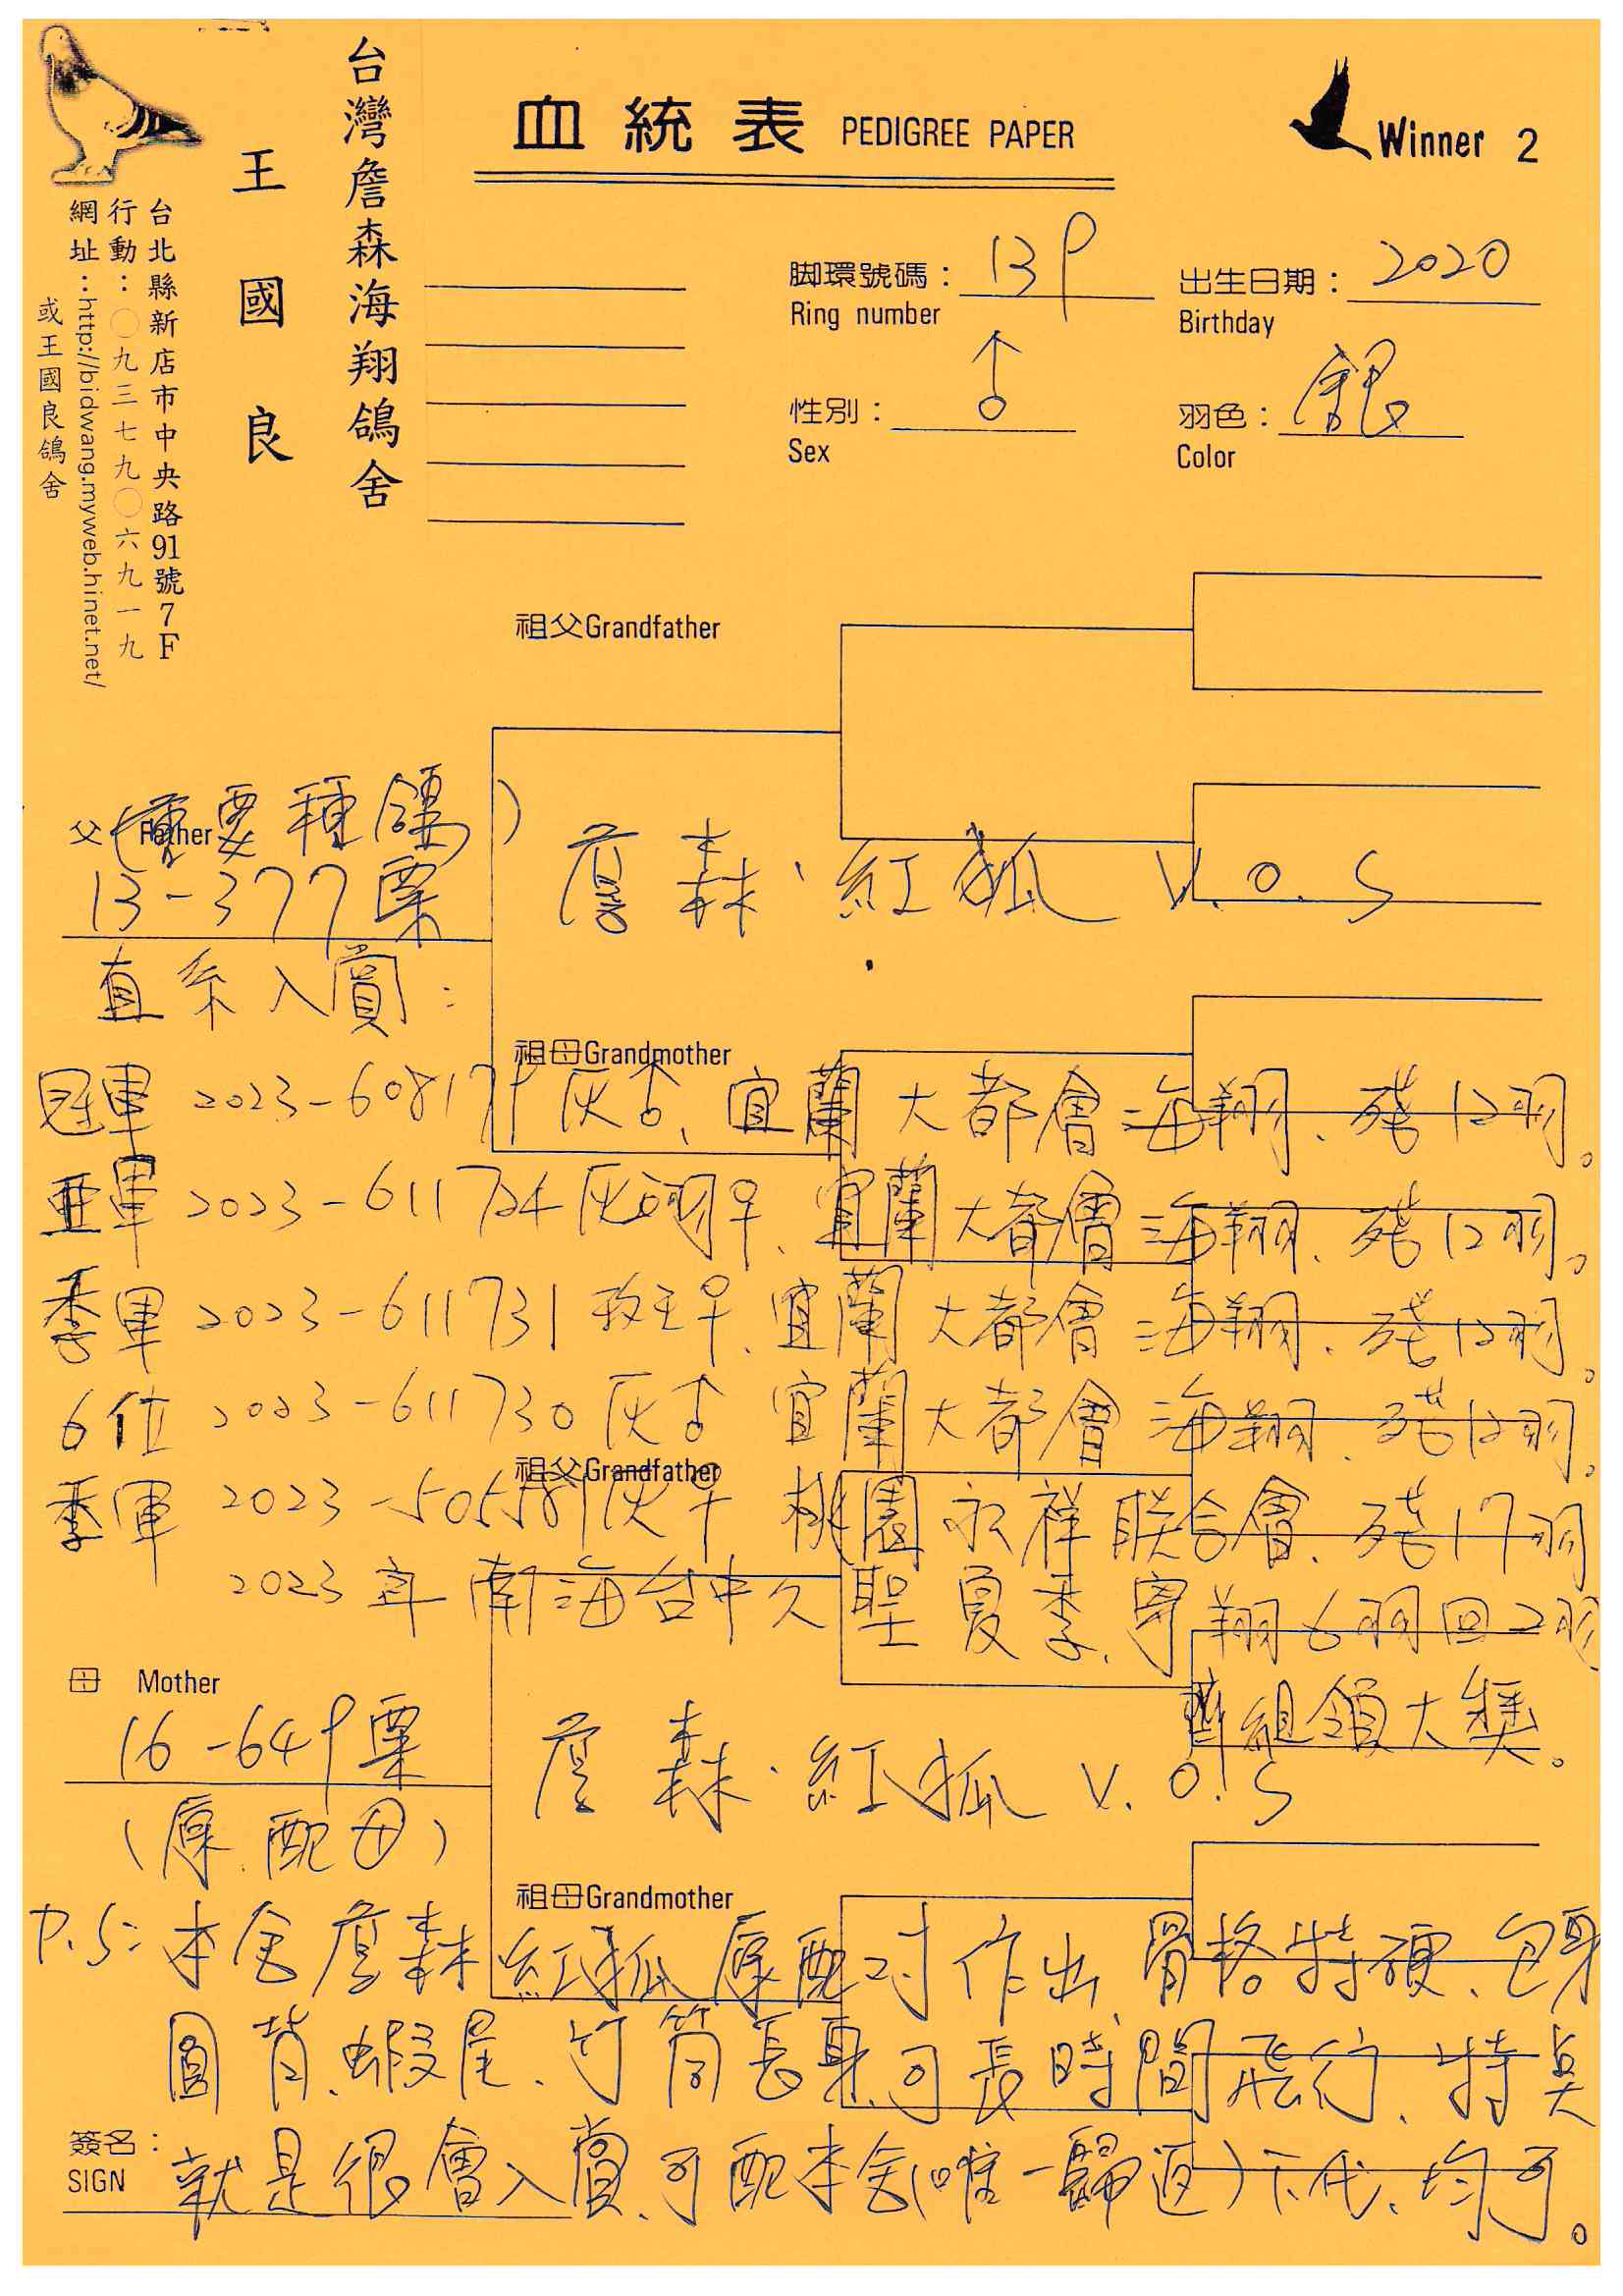 台灣詹森海翔鴿舍
王國良
台北縣新店市中央路91號7F
行動：〇九三七九〇六九一九
網址：http://bidwang.myweb.hinet.net/
或王國良鴿舍
血統表 PEDIGREE PAPER
Winner 2
脚環號碼： 139
Ring number
出生日期： 2020
Birthday
性別： ♂
Sex
羽色： 銀
Color
祖父Grandfather
父 Father (重要種鴿)
13-377栗
詹森·紅狐 V.O.S
直系入賞：
祖母Grandmother
冠軍 2023-608179灰♂、宜蘭大都會海翔、殘12羽。
亞軍 2023-611724灰白翔♀、宜蘭大都會海翔、殘12羽。
季軍 2023-611731 斑♀、宜蘭大都會海翔、殘12羽。
6位 2023-611730灰♂ 宜蘭大都會海翔、殘12羽。
祖父Grandfather
季軍 2023-505581灰♀ 桃園永祥联合會、殘17羽
2023年南海台中久聖夏季、寄翔6羽回2羽
母 Mother
16-649栗
詹森·紅狐 V.O.S
雙組領大獎。
(原配母)
祖母Grandmother
P.S：本舍詹森紅狐原配对作出、骨格特硬、包身
圓背、蝦尾、竹筒長身、可長時間飛行、特奌
簽名：
SIGN
就是很會入賞、可配本舍(唯一歸返)下代、均可。